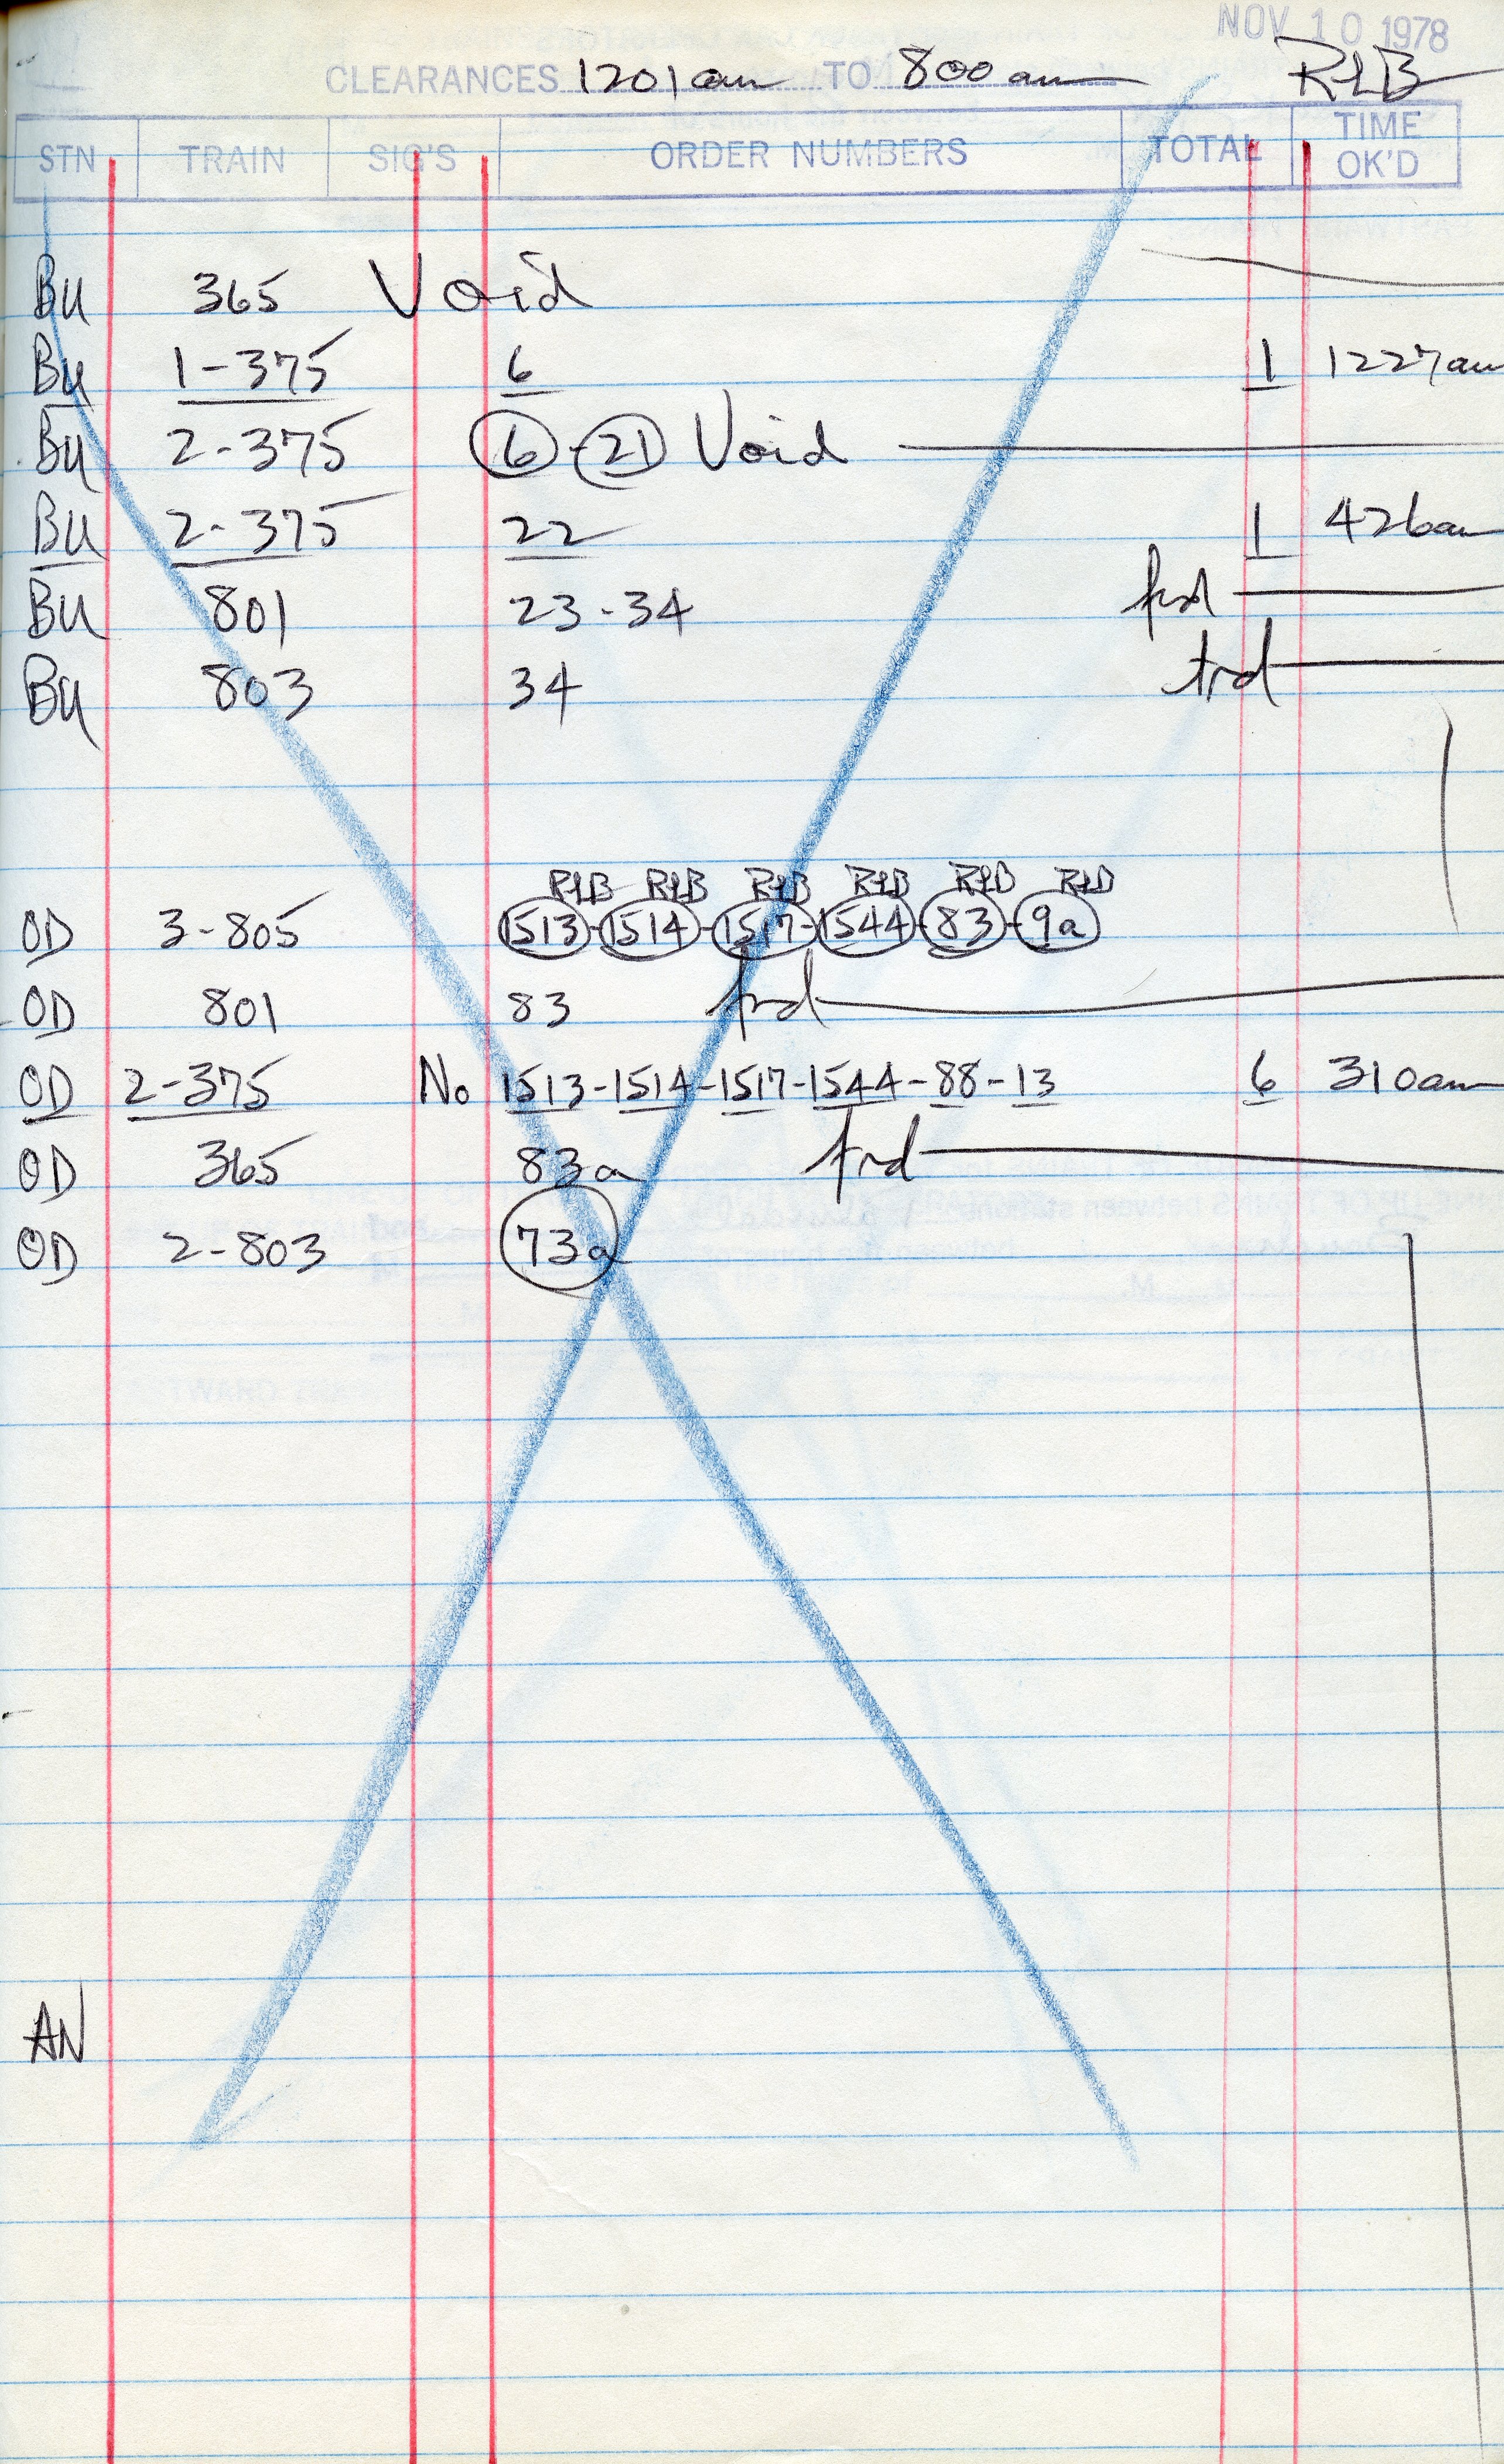 NOV 10 1978
CLEARANCES 1201am TO 800am RLB
STN TRAIN SIG'S ORDER NUMBERS TOTAL TIME OK'D
BU 365 Void
BU 1-375 6 1 1227am
BU 2-375 6-21 Void
BU 2-375 22 1 426am
BU 801 23-34 frd
BU 803 34 trd
RLB RLB RLB RLB RLB RLB
OD 3-805 1513-1514-1517-1544-83-9a
OD 801 83 frd
OD 2-375 No 1513-1514-1517-1544-88-13 6 310am
OD 365 83a frd
OD 2-803 73a
AN